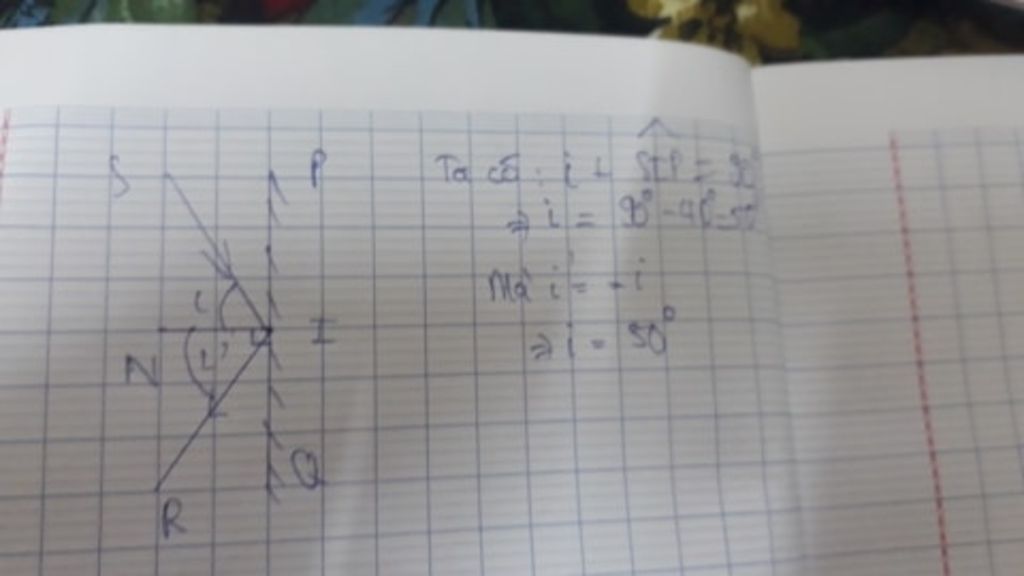 S
P
i
N
I
i'
Q
R
Ta có : i + SIP = 90
=> i = 90° - 40° = 50
Mà i' = i
=> i = 50°